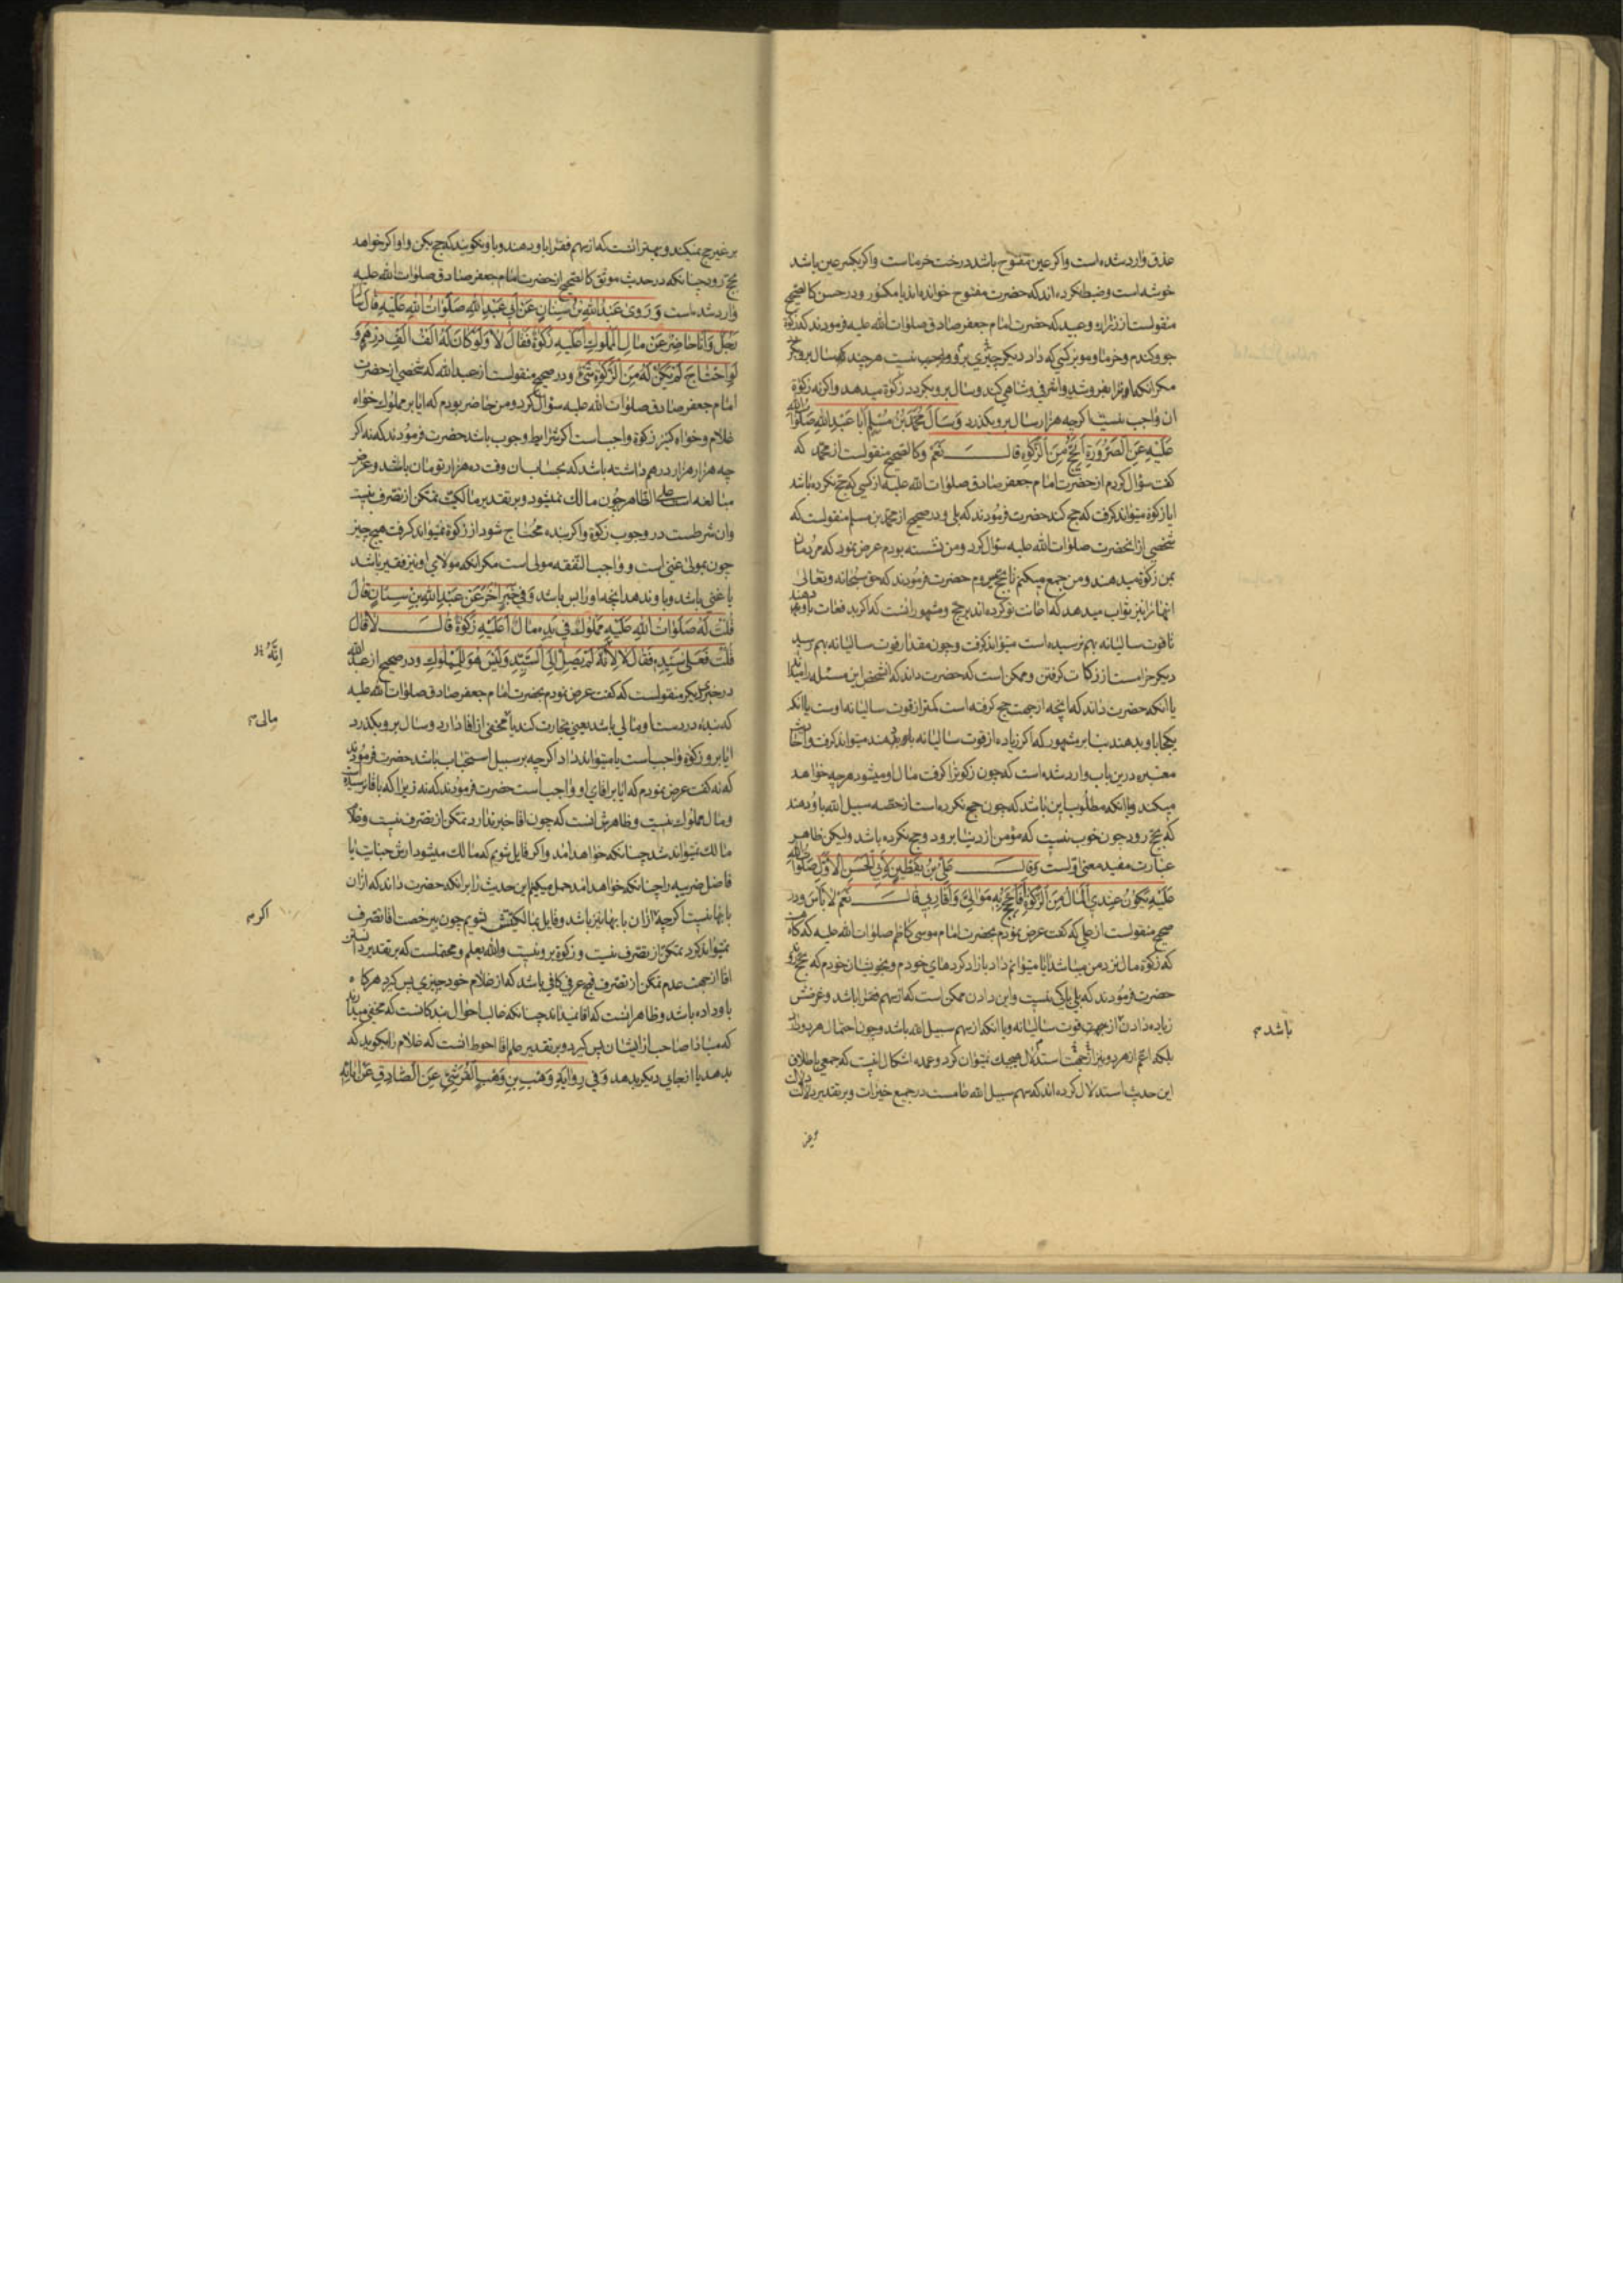 عذق وارد شده است واکر عین مفتوح باشد درخت خرماست واکر بکسر عین باشد
خوشه است وضبط نکرده اند که حضرت مفتوح خوانده اند یا مکسور ودر حسن کالصحیح
منقولست از زراره وعبید که حضرت امام جعفر صادق صلوات الله علیه فرمودند که زکوة
جو وکندم وخرما ومویز کسی که داد دیکر چیزی برو واجب نیست هر چند که سال برو بکذرد
مکر انکه اورا بفروشد واشرفی وشاهی کند وسال برو بکردد زکوة میدهد واکرنه زکوة
ان واجب نیست اکرچه هزار سال برو بکذرد وَسَأَلَ مُحَمَّدُ بْنُ مُسْلِمٍ أَبَا عَبْدِ اللهِ صَلَوَاتُ الله
عَلَيْهِ عَنِ الصَّرُورَةِ أَيَحُجُّ مِنَ الزَّكٰوةِ قالَ نَعَمْ وکالصحیح منقولست از محمد که
کفت سؤال کردم از حضرت امام جعفر صادق صلوات الله علیه از کسی که حج نکرده باشد
ایا از زکوة میتواند کرفت که حج کند حضرت فرمودند که بلی ودر صحیح از محمد بن مسلم منقولست که
شخصی از انحضرت صلوات الله علیه سؤال کرد ومن نشسته بودم عرض نمود که مردمان
بمن زکوة میدهند ومن جمع میکنم تا بحج میروم حضرت فرمودند که حق سبحانه وتعالی
انها را نیز ثواب میدهد که اعانت تو کرده اند بر حج ومشهور انست که اکر بدفعات باو دهند
تا قوت سالیانه بهم نرسیده است میتواند کرفت وچون مقدار قوت سالیانه بهم رسید
دیکر حرامست از زکات کرفتن وممکن است که حضرت داند که انشخص این مسئله را میداند
یا انکه حضرت داند که انچه از جهت حج کرفته است کمتر از قوت سالیانه اوست یا انکه
یکجا باو بدهند بنا بر مشهور که اکر زیاده از قوت سالیانه باو دهند میتواند کرفت واحادیث
معتبره درین باب وارد شده است که چون زکوة را کرفت مال او میشود هر چه خواهد
میکند ویا انکه مطلوب این باشد که چون حج نکرده است از حصه سبیل الله باو دهند
که بحج رود چون خوب نیست که مؤمن از دنیا برود وحج نکرده باشد ولیکن ظاهر
عبارت مفید معنی اولست وَقالَ عَلِيُّ بْنُ يَقْطِينٍ لِأَبِي الْحَسَنِ الْأَوَّلِ صَلَوَاتُ الله
عَلَيْهِ يَكُونُ عِنْدِي الْمَالُ مِنَ الزَّكٰوةِ فَأُحِجُّ بِهِ مَوَالِيَّ وَأَقَارِبِي قالَ نَعَمْ لَا بَأْسَ ودر
صحیح منقولست از علی که کفت عرض نمودم بحضرت امام موسی کاظم صلوات الله علیه که کاه هست
که زکوة مال نزد من میباشد ایا میتوانم داد بازاد کردهای خودم وبخویشان خودم که بحج روند
حضرت فرمودند که بلی باکی نیست واین دادن ممکن است که از سهم فقرا باشد وغرضش
زیاده دادن از جهت قوت سالیانه ویا انکه از سهم سبیل الله باشد وچون احتمال هر دو دارد
باشد
بلکه اعم از هر دو نیز از جهت استدلال بهیچیک نمیتوان کرد وعمده اشکال اینست که جمعی باطلاق
این حدیث استدلال کرده اند که سهم سبیل الله عامست در جمیع خیرات وبر تقدیر دلالت دلالت
بر غیر حج نمیکند وبهتر انست که از سهم فقرا باو دهند وباو نکویند که حج بکن واو اکر خواهد
بحج رود چنانکه در حدیث موثق کالصحیح از حضرت امام جعفر صادق صلوات الله علیه
وارد شده است وَرَوىٰ عَبْدُ اللهِ بْنُ سِنَانٍ عَنْ أَبِي عَبْدِ اللهِ صَلَوَاتُ اللهِ عَلَيْهِ قَالَ سَأَلَهُ
رَجُلٌ وَأَنَا حَاضِرٌ عَنْ مَالِ الْمَمْلُوكِ أَعَلَيْهِ زَكٰوةٌ فَقَالَ لَا وَلَوْ كَانَ لَهُ أَلْفُ أَلْفِ دِرْهَمٍ وَ
لَوِ احْتَاجَ لَمْ يَكُنْ لَهُ مِنَ الزَّكٰوةِ شَيْءٌ ودر صحیح منقولست از عبد الله که شخصی از حضرت
امام جعفر صادق صلوات الله علیه سؤال کرد ومن حاضر بودم که ایا بر مملوک خواه
غلام وخواه کنیز زکوة واجب است اکر شرایط وجوب باشد حضرت فرمودند که نه اکر
چه هزار هزار درهم داشته باشد که بحساب ان وقت ده هزار تومان باشد وغرض
مبالغه است علی الظاهر چون مالک نمیشود وبر تقدیر مالکیت تمکن از تصرف نیست
وان شرطست در وجوب زکوة واکر بنده محتاج شود از زکوة نمیتواند کرفت هیچ چیز
چون بمولی غنی است وواجب النفقه مولی است مکر انکه مولای او نیز فقیر باشد
یا غنی باشد وباو ندهد انچه اورا بس باشد وَفِي خَبَرٍ آخَرَ عَنْ عَبْدِ اللهِ بْنِ سِنَانٍ قَالَ
قُلْتُ لَهُ صَلَوَاتُ اللهِ عَلَيْهِ مَمْلُوكٌ فِي يَدِهِ مَالٌ أَعَلَيْهِ زَكٰوةٌ قَالَ لَا قَالَ
قُلْتُ فَعَلىٰ سَيِّدِهِ فَقَالَ لَا لِأَنَّهُ لَمْ يَصِلْ إِلَى السَّيِّدِ وَلَيْسَ هُوَ لِلْمَمْلُوكِ ودر صحیح از عبد الله
إِنَّهُ
در خبر دیکر منقولست که کفت عرض نمودم بحضرت امام جعفر صادق صلوات الله علیه
که بنده در دست او مالی باشد یعنی تجارت کند یا مخفی از اقا دارد وسال برو بکذرد
مالی
ایا برو زکوة واجب است یا میتواند داد اکرچه بر سبیل استحباب باشد حضرت فرمودند
که نه کفت عرض نمودم که ایا بر اقای او واجب است حضرت فرمودند که نه زیرا که باقا نرسیده است
ومال مملوک نیست وظاهرش انست که چون اقا خبر ندارد تمکن از تصرف نیست وغلام
مالک نمیتواند شد چنانکه خواهد امد واکر قایل شویم که مالک میشود ارش جنایت یا
فاضل ضریبه را چنانکه خواهد امد حمل میکنیم این حدیث را بر انکه حضرت داند که از ان
بابها نیست اکرچه از ان بابها نیز باشد وقایل بمالکیتش شویم چون بی رخصت اقا تصرف
اکر
نمیتواند کرد تمکن از تصرف نیست وزکوة برو نیست والله یعلم ومحتملست که بر تقدیر دانستن
اقا از جهت عدم تمکن از تصرف قبح عرفی کافی باشد که از غلام خود چیزی پس کیرد هرکاه
باو داده باشد وظاهر انست که اقا نمیداند چنانکه غالب احوال بندکانست که مخفی میدارند
که مبادا صاحب از ایشان پس کیرد وبر تقدیر علم اقا احوط انست که غلام را بکوید که
بدهد یا از جای دیکر بدهد وَفِي رِوَايَةِ وَهْبِ بْنِ وَهْبٍ الْقُرَشِيِّ عَنِ الصَّادِقِ عَنْ آبَائِهِ